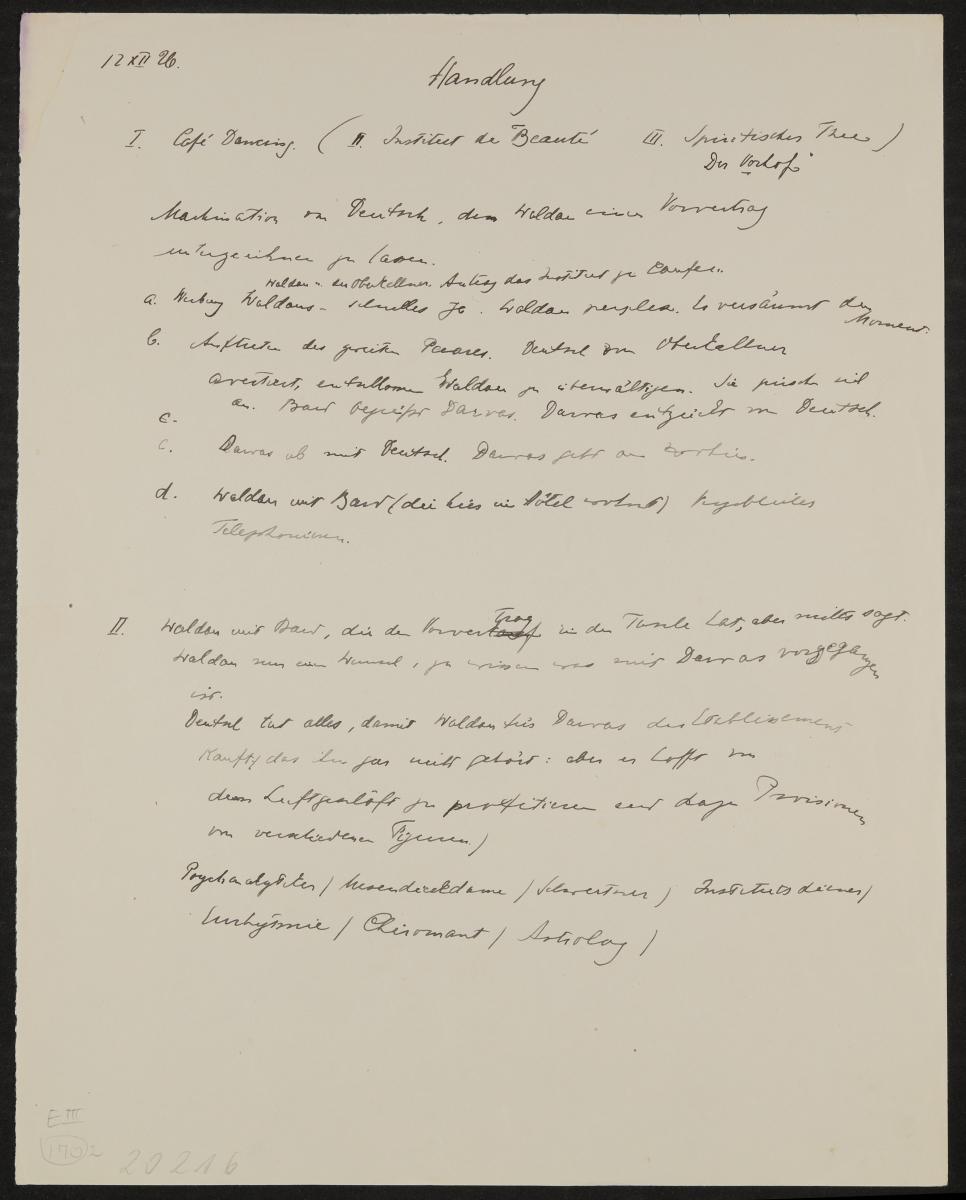 12 XII 26.
Handlung
I. Café Dancing. ( II. Institut de Beauté III. Spiritistischer Thee )
Der Vorhof
Machination von Deutsch, dem Waldau einen Vorvertrag
unterzeichnen zu lassen.
Waldau u. ein Oberkellner. Antrag das Institut zu kaufen.
a. Werbung Waldaus - schnelles Ja. Waldau perplex. Er versäumt den
Moment.
b. Auftreten des zweiten Paares. Deutsch vom Oberkellner
avertiert, entschlossen Waldau zu überwältigen. Sie
an. Bard begrüßt Darvas. Darvas entzückt von Deutsch.
c.
c. Darvas ab mit Deutsch. Darvas geht
d. Waldau mit Bard (die hies im Hôtel wohnt)
Telephonieren.
II. Waldau mit Bard, die den Vorvertrag in der Tasche hat, aber nichts sagt.
Waldau nur einen Wunsch, zu wissen was mit Darvas vorgegangen
ist.
Deutsch tut alles, damit Waldau Darvas das Etablissement
kauft, das ihm gar nicht gehört: aber er hofft von
dem Luftgeschäft zu profitieren und dazu Provisionen
von verschiedenen Figuren.)
Psychoanalytiker / Mensendieckdame / / Institutsdiener /
Eurhytmie / Chiromant / Astrolog /
E III
170 2
20216